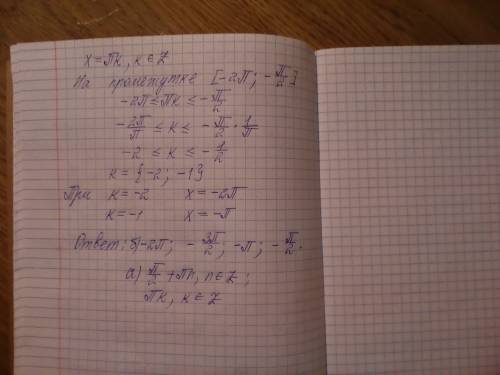 x = πk, k ∈ Z
На промежутке [-2π; -π/2]
-2π ≤ πk ≤ -π/2
-2π/π ≤ k ≤ -π/2 · 1/π
-2 ≤ k ≤ -1/2
k = {-2; -1}
При k = -2 x = -2π
k = -1 x = -π
Ответ: б) -2π; -3π/2; -π; -π/2.
а) π/2 + πn, n ∈ Z;
πk, k ∈ Z